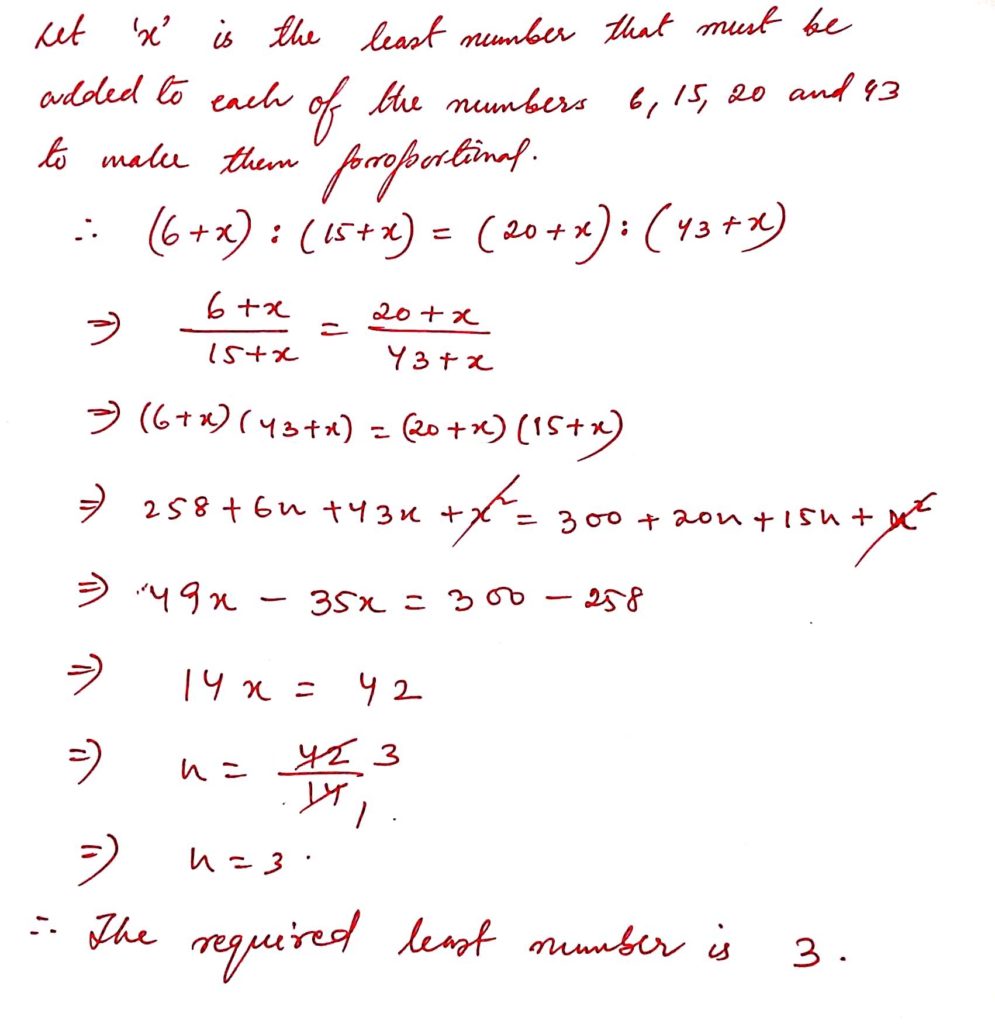 Let 'x' is the least number that must be
added to each of the numbers 6, 15, 20 and 43
to make them proportional.
∴ (6+x) : (15+x) = (20+x) : (43+x)
⇒ 6+x / 15+x = 20+x / 43+x
⇒ (6+x)(43+x) = (20+x)(15+x)
⇒ 258 + 6x + 43x + x² = 300 + 20x + 15x + x²
⇒ 49x − 35x = 300 − 258
⇒ 14x = 42
⇒ x = 42 3 / 14 1 .
⇒ x = 3 .
∴ The required least number is 3 .